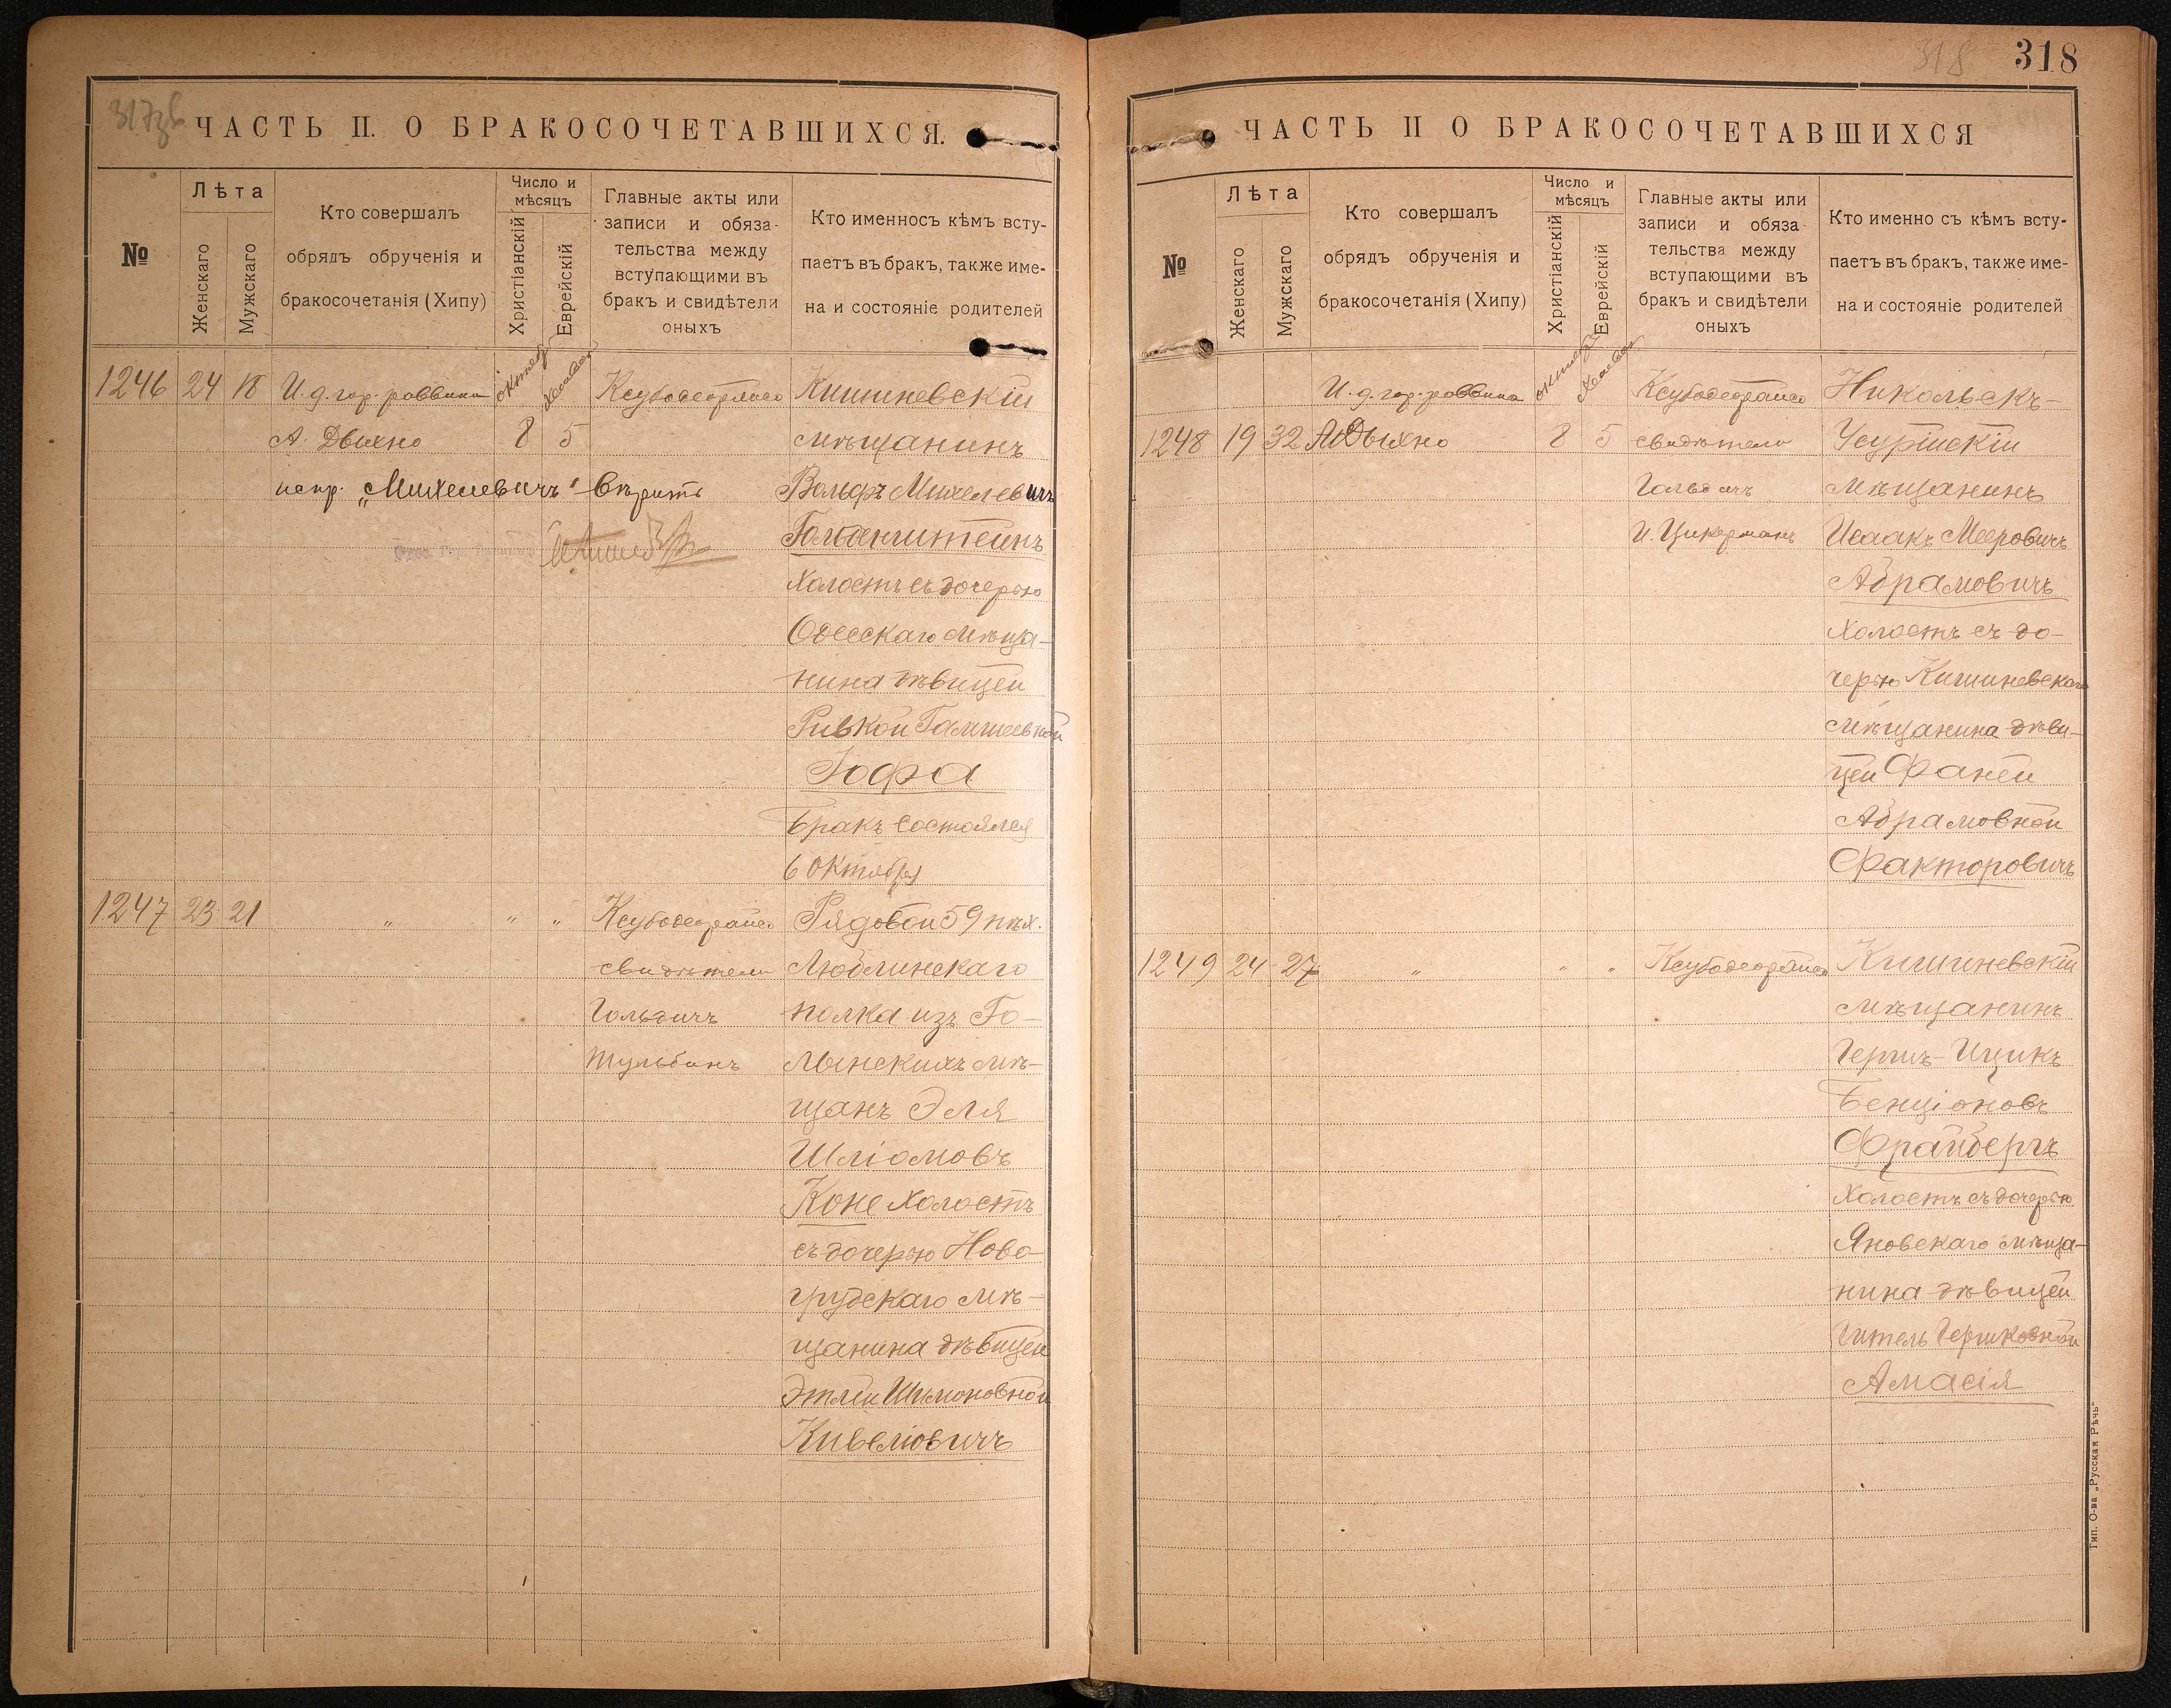 317зв
ЧАСТЬ II. О БРАКОСОЧЕТАВШИХСЯ.
№
Лѣта
Женскаго
Мужскаго
Кто совершалъ
обрядъ обрученія и
бракосочетанія (Хипу)
Число и
мѣсяцъ
Христіанскій
Еврейскій
Главные акты или
записи и обяза-
тельства между
вступающими въ
бракъ и свидѣтели
оныхъ
Кто именносъ кѣмъ всту-
паетъ въ бракъ, также име-
на и состояніе родителей
1246 24 18 И. д. гор. раввина
А. Дыхно
октяб.
8 5
испр. „Михелевичъ" вѣрить
Кишиневскій
мѣщанинъ
Вольфъ Михелевичъ
Гольденштейнъ
холостъ съ дочерью
Одесскаго мѣща-
нина дѣвицей
Ривкой
Гофра
Бракъ состоялся
6 Октября
1247 23 21 " " "
свидѣтели
Гольдичъ
Тульбанъ
Рядовой 59 пѣх.
Люблинскаго
полка изъ Го-
лынскихъ мѣ-
щанъ Эля
Шліомовъ
Коне холостъ
съ дочерью Ново-
грудскаго мѣ-
щанина дѣвицей
Этлей Шимоновной
Кивеліовичъ
318
318
ЧАСТЬ II О БРАКОСОЧЕТАВШИХСЯ
№
Лѣта
Женскаго
Мужскаго
Кто совершалъ
обрядъ обрученія и
бракосочетанія (Хипу)
Число и
мѣсяцъ
Христіанскій
Еврейскій
Главные акты или
записи и обяза-
тельства между
вступающими въ
бракъ и свидѣтели
оныхъ
Кто именно съ кѣмъ всту-
паетъ въ бракъ, также име-
на и состояніе родителей
И. д. гор. раввина
октяб.
1248 19 32 А. Дыхно 8 5
свидѣтели
Гольдичъ
И. Цукерманъ
Никольскъ-
Усурійскій
мѣщанинъ
Исаакъ Мееровичъ
Абрамовичъ
холостъ съ до-
черью Кишиневскаго
мѣщанина дѣви-
цей Фаней
Абрамовной
Факторовичъ
1249 24 27 " " "
Кишиневскій
мѣщанинъ
Гершъ-Ицикъ
Бенціоновъ
Фрайбергъ
холостъ съ дочерью
Яновскаго мѣща-
нина дѣвицей
Гитель Гершковной
Амасія
Тип. О-ва „Русская Рѣчь"